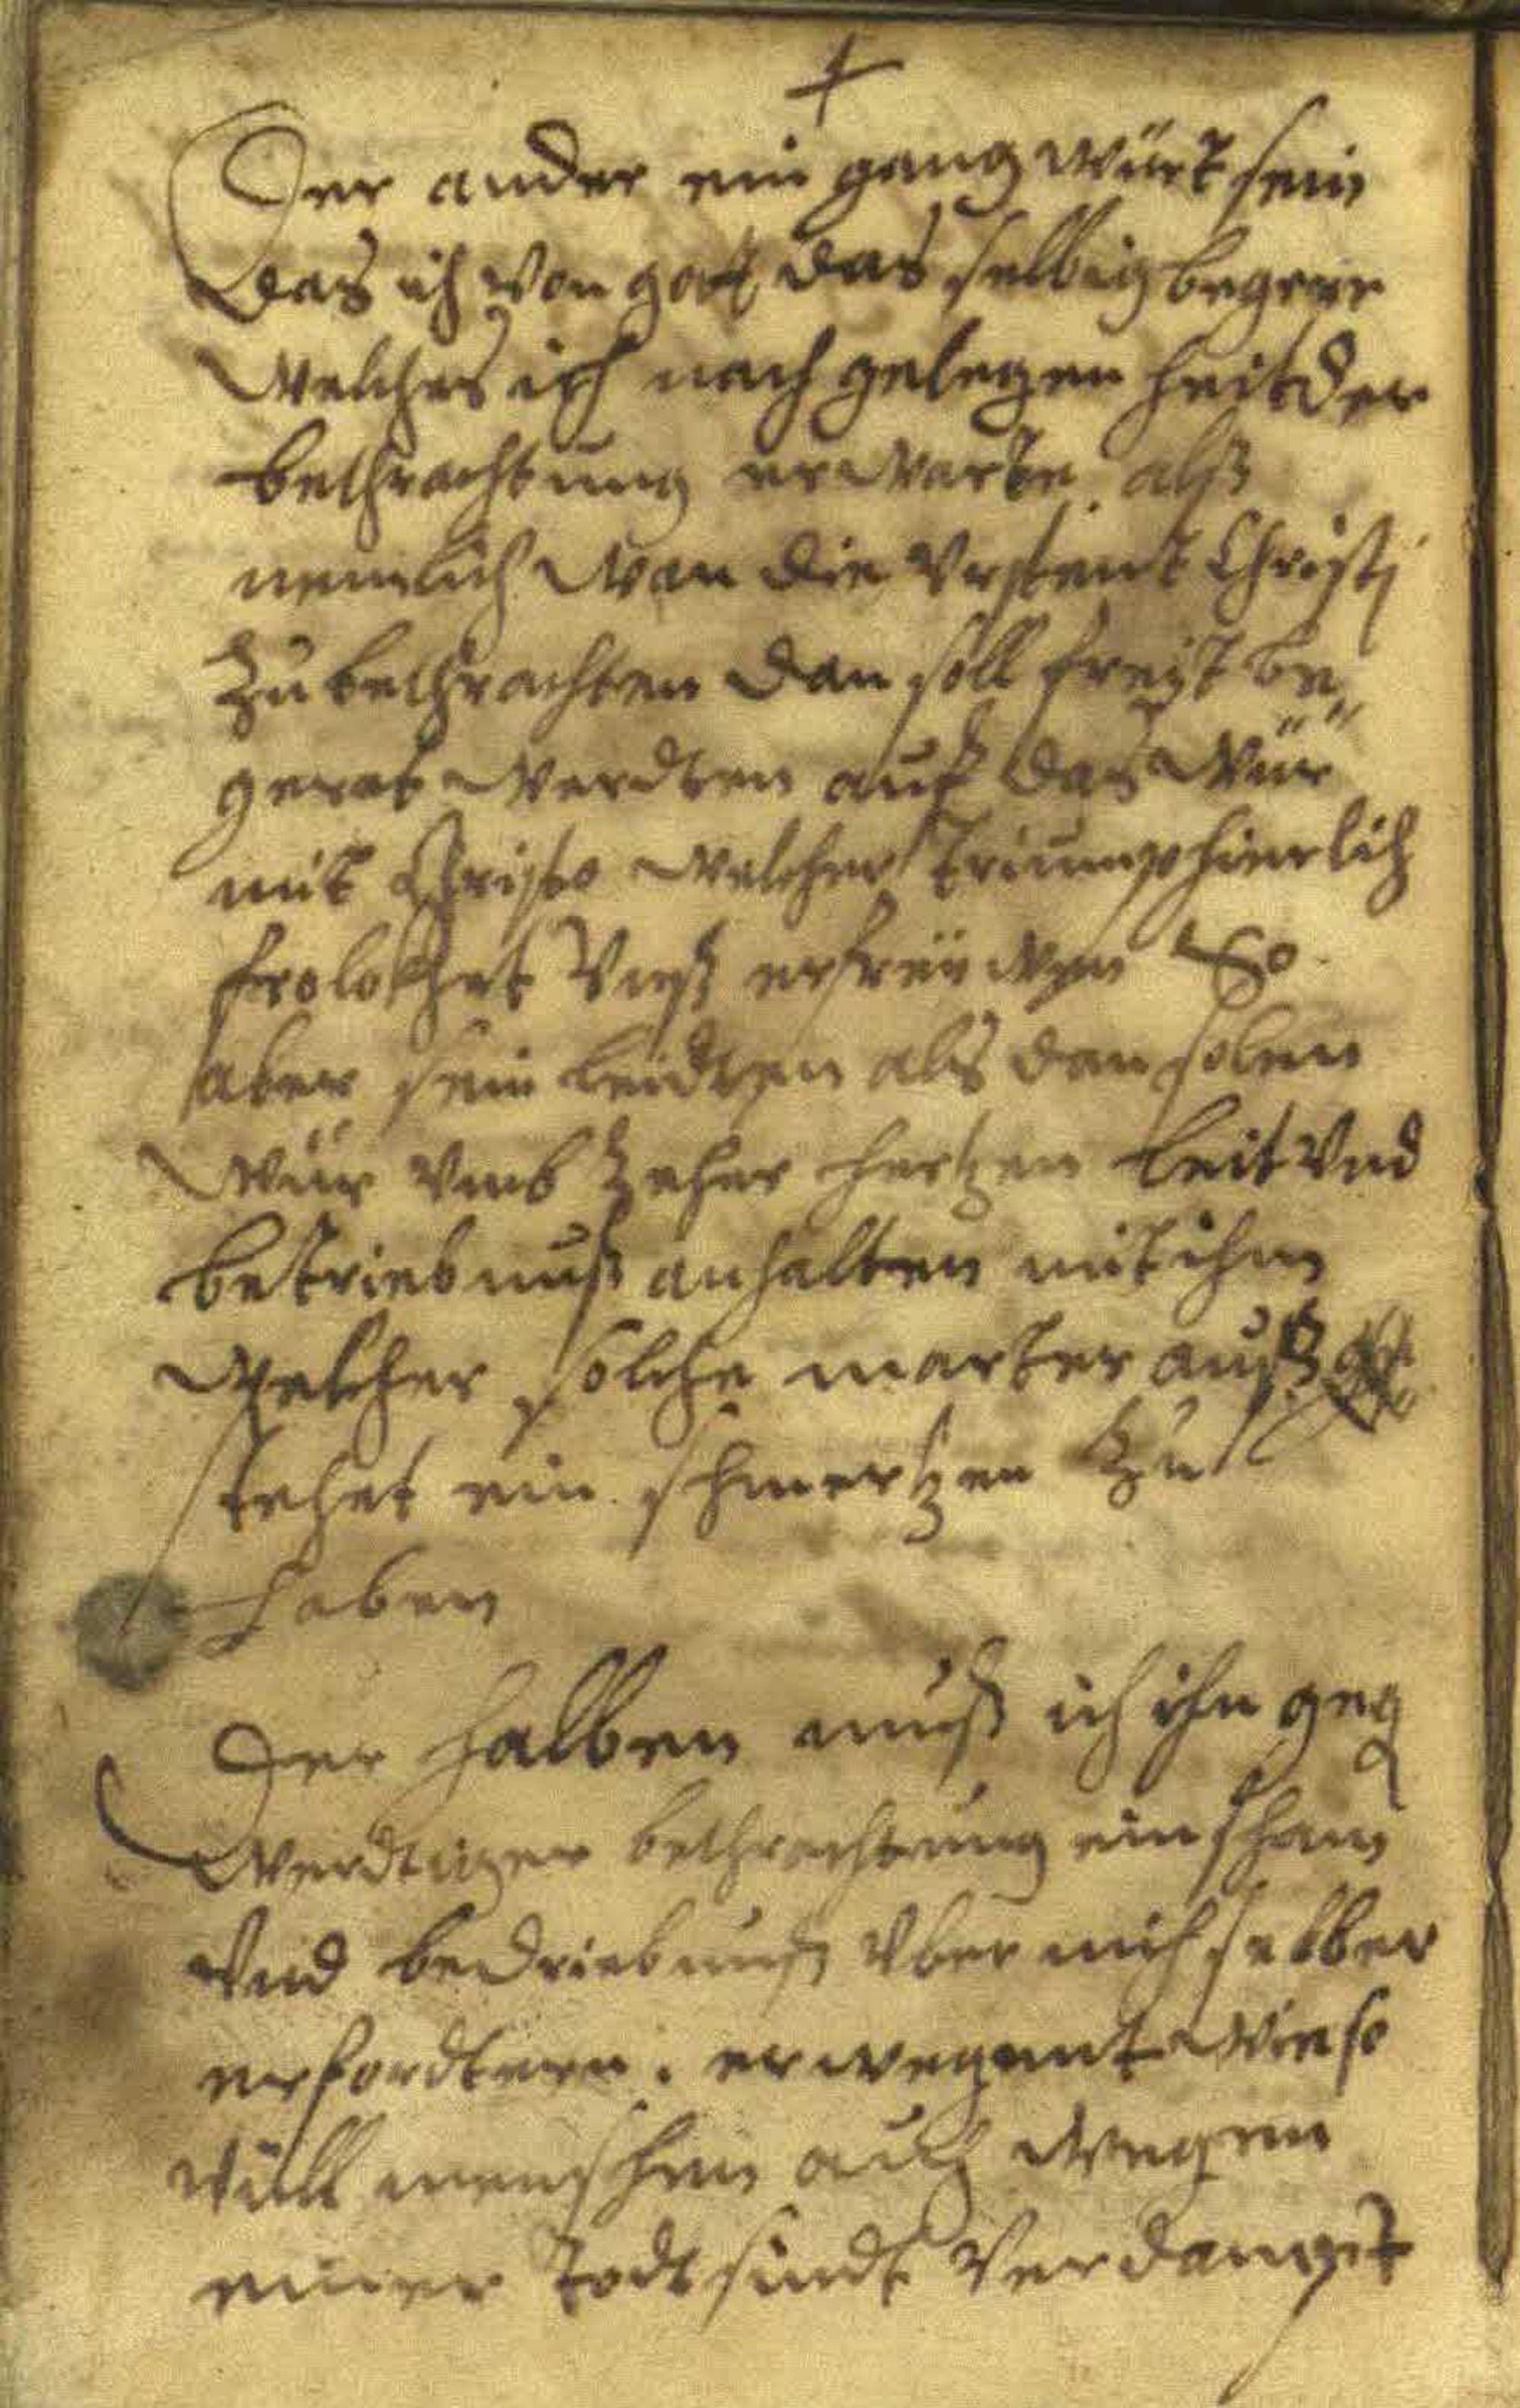 Der ander ein gang würt sein
Das ich von gott das selbig begere
Welches ich nach gelegen heit der
bethrachtung erwarte. alß
nemlich wan die Vrstent Christj
Zu bethrachten dan soll freÿt be„
gerat werdten auf das wür
mit Christo welcher triumphierlich
frolokhet Vnß erfreüwen So
aber sein leidten als dan solen
wür vmb Zeher hertzen leit Vnd
betriebnuß anhalten mit ihm
welcher solche marter auß
stehet ein schmertzen Zu
haben
Der halben muß ich ihn geg
werdtiger bethrachtung ein scham
Vnd bedriebnuß Vber mich selber
erfordteren. erwegent wie so
vüll menschen auch wegen
einer todt sündt Verdampt